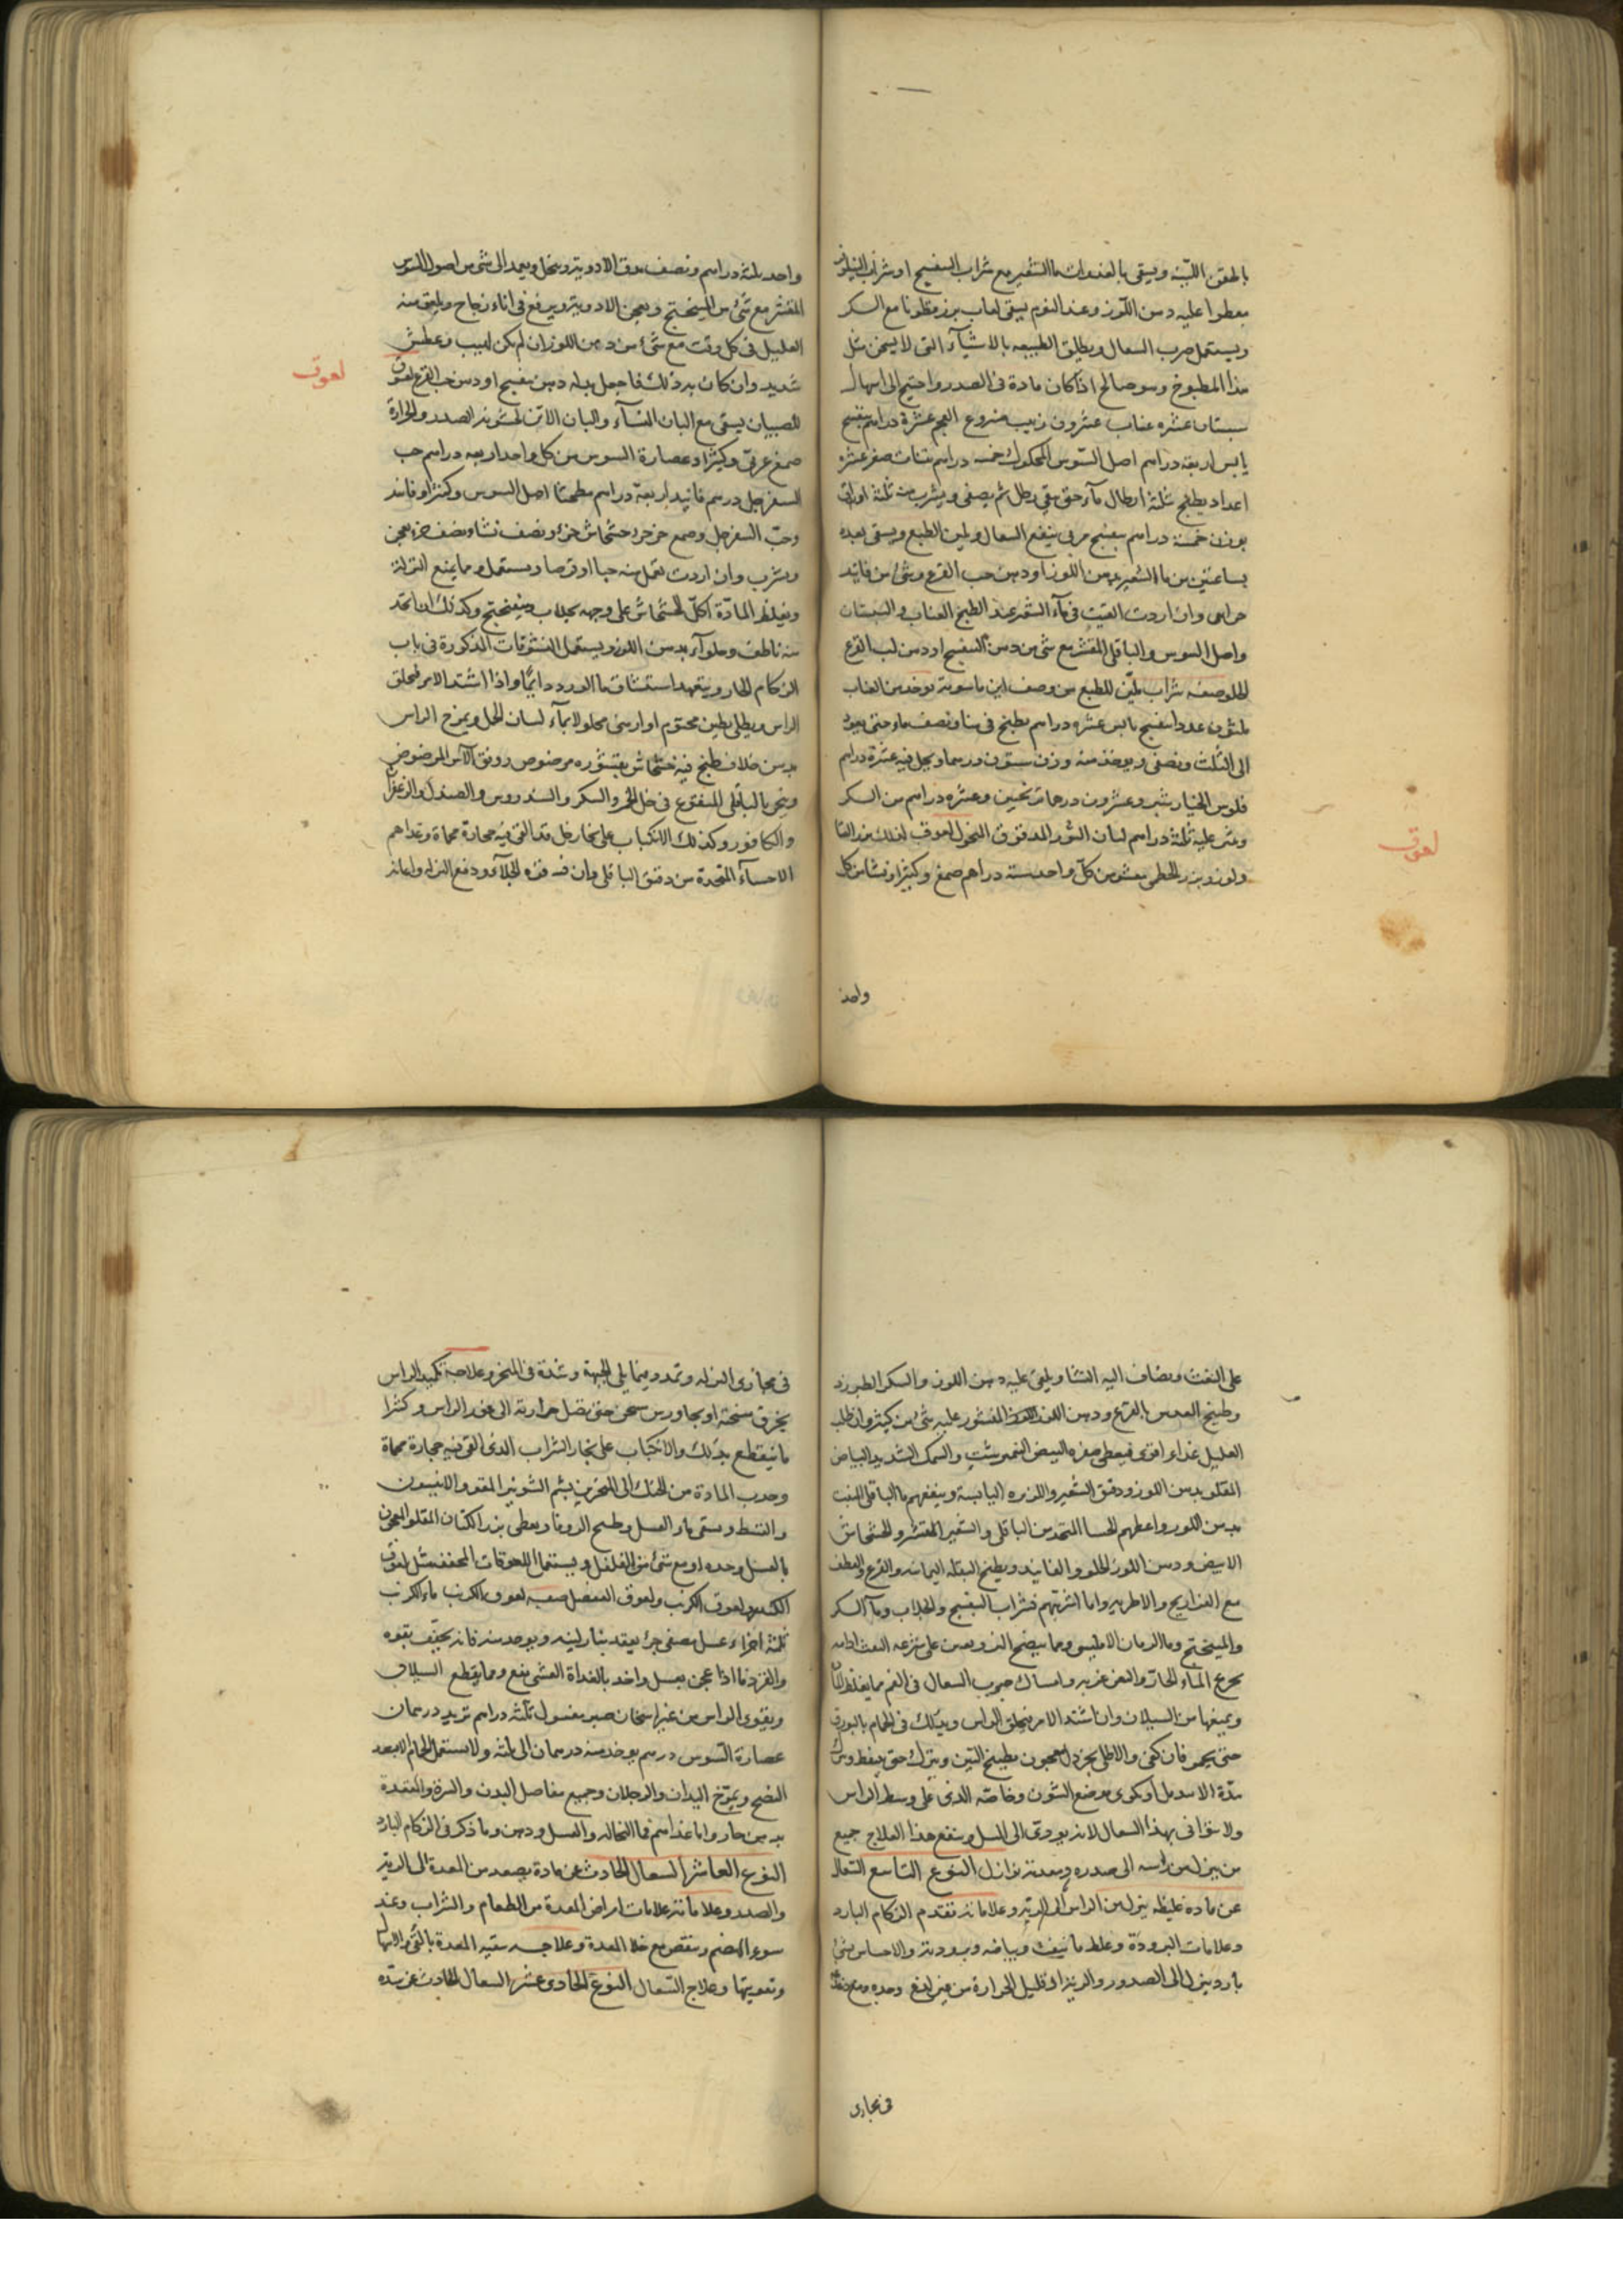 بالحقن اللينة ويسقى بالغدوات ماء الشعير مع شراب البنفسج او شراب النيلوفر
مقطرا عليه دهن اللوز وعند النوم يسقى لعاب بزر قطونا مع السكر
ويستعمل حب السعال ويطلق الطبيعه بالاشياء التى لا يسخن مثل
هذا المطبوخ وهو صالح اذا كان مادة فى الصدر واحتيج الى اسهال
سبستان عشره عناب عشرون زبيب منزوع العجم عشرة دراهم بنفسج
يابس اربعة دراهم اصل السوس المحكوك خمسه دراهم تينات صفر عشره
اعداد يطبخ بثلثة ارطال ماء حتى يبقى رطل ثم يصفى ويشرب منه ثلثة اواق
بوزن خمسة دراهم بنفسج مربى ينفع السعال ويلين الطبع ويسقى بعده
بساعتين من ماء الشعير دهن اللوز او دهن حب القرع وشئ من فانيد
وان اردت فى ماء الشعير عند الطبخ العناب والسبستان
واصل السوس والباقلى المقشر مع شئ من دهن البنفسج او دهن لب القرع
الحلو صفه شراب ملين للطبع من وصف ابن ماسويه يوخذ من العناب
ثلثون عددا بنفسج يابس عشره دراهم يطبخ فى منا ونصف ماء حتى يعود
الى الثلث ويصفى ويوخذ منه وزن ستون درهما ويحل فيه عشرة دراهم
فلوس الخيار شنبر وعشرون درهما ترنجبين وعشره دراهم من السكر
عليه ثلثة دراهم لسان الثور المدقوق المنخول لعوق لذلك بزر القثا
ولوز وبزر الخطمى مقشر من كل واحد ستة دراهم صمغ وكثيرا ونشا من كل
لعوق
واحد
واحد ثلثة دراهم ونصف يدق الادوية وينخل ويعمد الى شئ من اصول السوس
المقشر مع شئ من الميبختج ويعجن الادوية ويرفع فى اناء زجاج ويلعق منه
العليل فى كل وقت مع شئ من دهن اللوز ان لم يكن لهيب وعطش
شديد وان كان يرد ذلك فاجعل بدله دهن بنفسج او دهن حب القرع لعوق
للصبيان يسقى مع البان النساء والبان الاتن لخشونة الصدر والحرارة
صمغ عربى وكثيرا وعصارة السوس من كل واحد اربعه دراهم حب
السفرجل درهم فانيد اربعة دراهم اصل السوس وكثيرا وفانيد
وحب السفرجل وصمغ جزء جزء خشخاش جزء ونصف نشاء نصف جزء يعجن
ويشرب وان اردت تعمل منه حبا او قرصا ويستعمل ومما يمنع النزلة
ويغلظ المادة اكل الخشخاش على وجهه بجلاب وميبختج وكذلك ان اتخذ
منه ناطف وحلوآء بدهن اللوز ويستعمل النشوقات المذكورة فى باب
الزكام الحار ويتعهد استنشاق ماء الورد دايما واذا اشتد الامر فيحلق
الراس ويطلى بطين مختوم او ارمنى محلولا بماء لسان الحمل ويمرخ الراس
بدهن خلاف طبخ فيه خشخاش بقشوره مرضوض وورق الآس المرضوض
وبخر بالباقلى المنقوع فى خل الخمر والسكر والسندروس والصندل والزعفران
والكافور وكذلك الانكباب على بخار خل قد القى فيه حجارة محماة وغذاهم
الاحساء المتخذة من دقيق الباقلى فان فيه قوة الجلآء ودفع النزله واعانه
لعوق
على النفث ويضاف اليه النشا ويلقى عليه دهن اللوز والسكر الطبرزد
وطبيخ العدس بالقرع ودهن اللوز المنثور عليه شئ من كثيرا وان طلب
العليل غذاء اقوى فيعطى صفره البيض النيمبرشت والسمك الشديد البياض
المقلو بدهن اللوز ودقيق الشعير والذره اليابسة وينفعهم ماء الباقلى المنبت
بدهن اللوز واعطهم الحسا المتخذ من الباقلى والشعير المقشر والخشخاش
الابيض ودهن اللوز الحلو والفانيد ويطبخ البقلة اليمانيه والقرع والقطف
مع الفراريج والاطريه واما اشربتهم فشراب البنفسج والجلاب وماء السكر
والميبختج وماء الرمان الامليسى ومما ينضج النزله ويعين على سرعه النفث ادامه
تجرع الماء الحار والتغرغر به وامساك حبوب السعال فى الفم مما يغلظ المادة
ويمنعها من السيلان وان اشتد الامر فيحلق الراس ويدلك فى الحمام بالبورق
حتى يحمر فان كفى والا طلى بخردل معجون بطبيخ التين ويترك حتى ينفط
مدة الا يندمل او يكوى موضع الشئون وخاصه الذى على وسط الراس
ولا يتوانى بهذا السعال لانه يودى الى السل وينفع هذا العلاج جميع
من ينزل من راسه الى صدره ومعدته نوازل النوع التاسع السعال
عن ماده غليظه ينزل من الراس الى الرئة وعلاماته تقدم الزكام البارد
وعلامات البرودة وغلظ ما ينفث وبياضه وبرودته والاحساس بشئ
بارد ينزل الى الصدر والرية او قليل الحرارة من غير لذع وحده ومع ضغطة
فى مجارى
فى مجارى النزله وتمدد فيما يلى الجبهة وشدة فى المنخر وعلاجه تكميد الراس
بخرق مسخنة او بجاورس مسخن حتى تصل حرارته الى غور الراس وكثيرا
ما تنقطع بذلك والانكباب على بخار الشراب الذى القى فيه حجارة محماة
وجذب المادة من الحنك الى المنخرين بشم الشونيز المقلو والانيسون
والقسط ويسقى ماء العسل وطبيخ الزوفا ويعطى بزر الكتان المقلو المعجون
بالعسل وحده او مع شئ من الفلفل ويستعمل اللعوقات المجففه مثل لعوق
الكندر ولعوق الكرنب ولعوق العنصل صفه لعوق الكرنب ماء الكرنب
ثلثة اجزاء عسل مصفى جزء يعقد بنار لينه ويوخذ منه فانه يجفف بقوه
والقردمانا اذا عجن بعسل واخذ بالغداة والعشى نفع ومما يقطع السيلان
ويقوى الراس من غير اسخان صبر مغسول ثلثه دراهم تربد درهمان
عصارة السوس درهم يوخذ منه درهمان الى ثلثة ولا يستعمل الحمام الا بعد
النضج ويمرخ اليدان والرجلان وجميع مفاصل البدن والسرة والمقعدة
بدهن حار واما غذاهم فماء النخاله والعسل ودهن وما ذكر فى الزكام البارد
النوع العاشر السعال الحادث عن مادة يصعد من المعدة الى الرية
والصدر وعلاماته علامات امراض المعدة من الطعام والشراب وعند
سوء الهضم وينقص مع خلاء المعدة وعلاجه تنقيه المعدة بالقئ والاسهال
وتقويتها وعلاج السعال النوع الحادى عشر السعال الحادث عن مدة